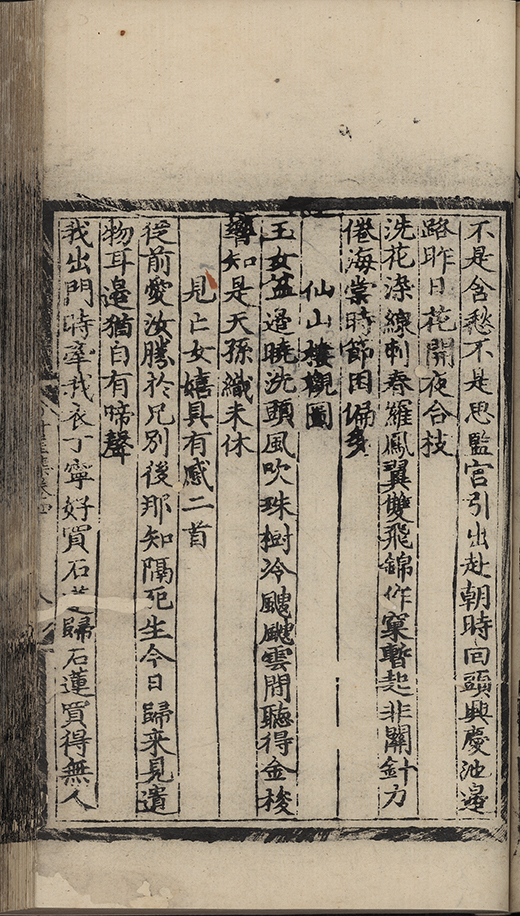 不是含愁不是思監官引出赴朝時回頭興慶池邊
路昨日花開夜合枝
洗花染線刺春羅鳳翼雙飛錦作窠暫起非關針力
倦海棠時節困偏多
仙山樓觀圖
玉女盆邊曉洗頭風吹珠樹冷颼颼雲間聽得金梭
響知是天孫織未休
見亡女嬉具有感二首
從前愛汝勝於兄別後那知隔死生今日歸来見遺
物耳邊猶自有啼聲
我出門時牽我衣丁寧好買石蓮歸石蓮買得無人